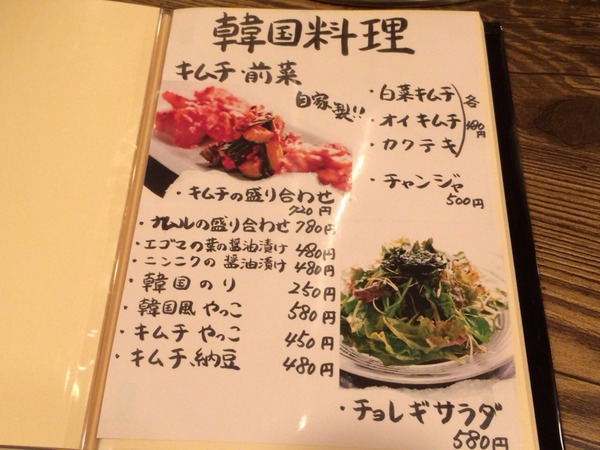 韓国料理
キムチ 前菜
自家製!!
・白菜キムチ
・オイキムチ
・カクテキ
各
480円
・チャンジャ
500円
・キムチの盛り合わせ
920円
・ナムルの盛り合わせ 780円
・エゴマの葉の醤油漬け 480円
・ニンニクの醤油漬け 480円
・韓国のり 250円
・韓国風やっこ 580円
・キムチやっこ 450円
・キムチ納豆 480円
・チョレギサラダ
580円